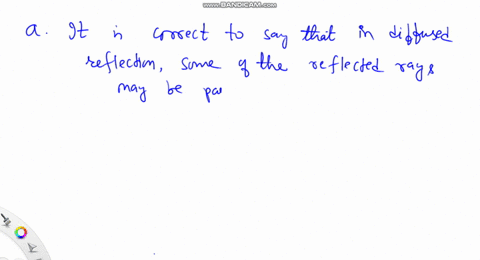 www.BANDICAM.com
a. It is correct to say that in diffused
reflection, some of the reflected rays
may be pa